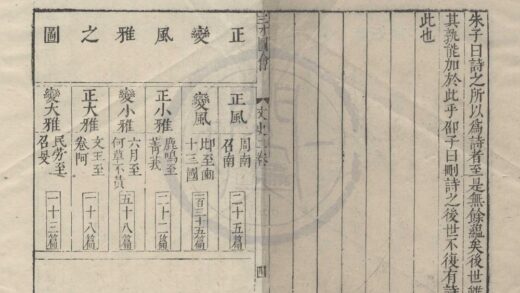 朱子曰詩之所以爲詩者至是無餘蘊矣後世雖
其孰能加於此乎邵子曰刪詩之後世不復有詩
此也
三才圖會
文史二卷
四
正變風雅之圖
正風
周南
召南
二十五篇
變風
邶至豳
十三國
一百三十五篇
正小雅
鹿鳴至
菁莪
二十二篇
變小雅
六月至
何草不黃
五十八篇
正大雅
文王至
卷阿
一十八篇
變大雅
民勞至
召旻
一十三篇